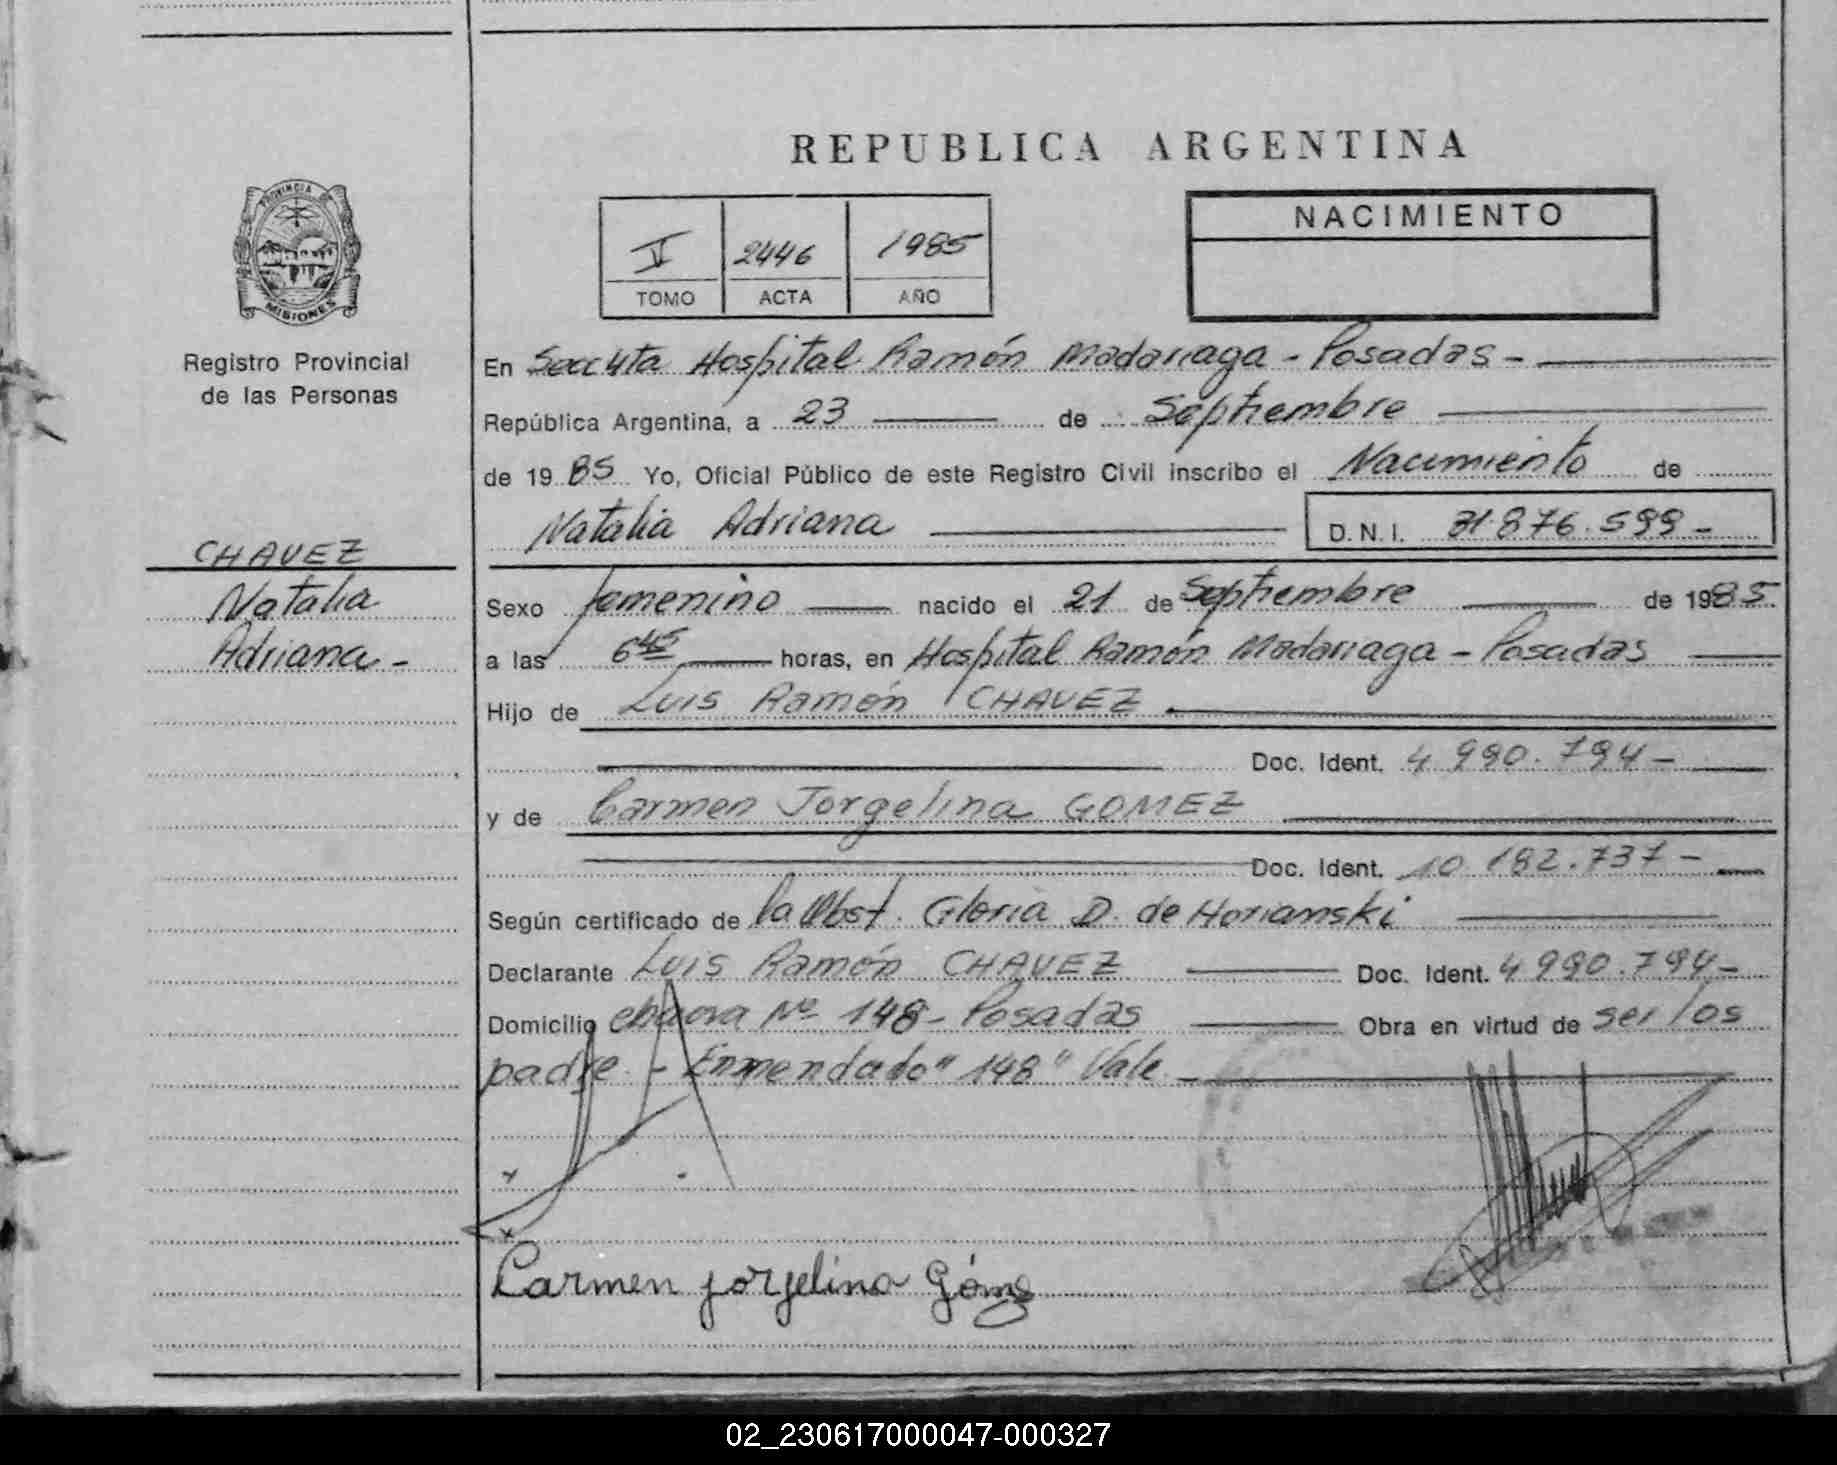 REPUBLICA ARGENTINA
PROVINCIA DE
MISIONES
Registro Provincial
de las Personas
V 2446 1985
TOMO ACTA AÑO
NACIMIENTO
En Secc 4ta Hospital Ramón Madariaga - Posadas -
República Argentina, a 23 de Septiembre
de 1985 Yo, Oficial Público de este Registro Civil inscribo el Nacimiento de
Natalia Adriana D.N.I. 31.876.599 -
CHAVEZ
Natalia
Adriana -
Sexo femenino nacido el 21 de Septiembre de 1985.
a las 6 45 horas, en Hospital Ramón Madariaga - Posadas
Hijo de Luis Ramón CHAVEZ
Doc. Ident. 4 990.794 -
y de Carmen Jorgelina GOMEZ
Doc. Ident. 10 182.737 -
Según certificado de la Obst. Gloria D. de Horianski
Declarante Luis Ramón CHAVEZ Doc. Ident. 4 990.794 -
Domicilio Nº 148 - Posadas Obra en virtud de ser los
padre - Enmendado "148" Vale -
Carmen Jorgelina Góme
02_230617000047-000327